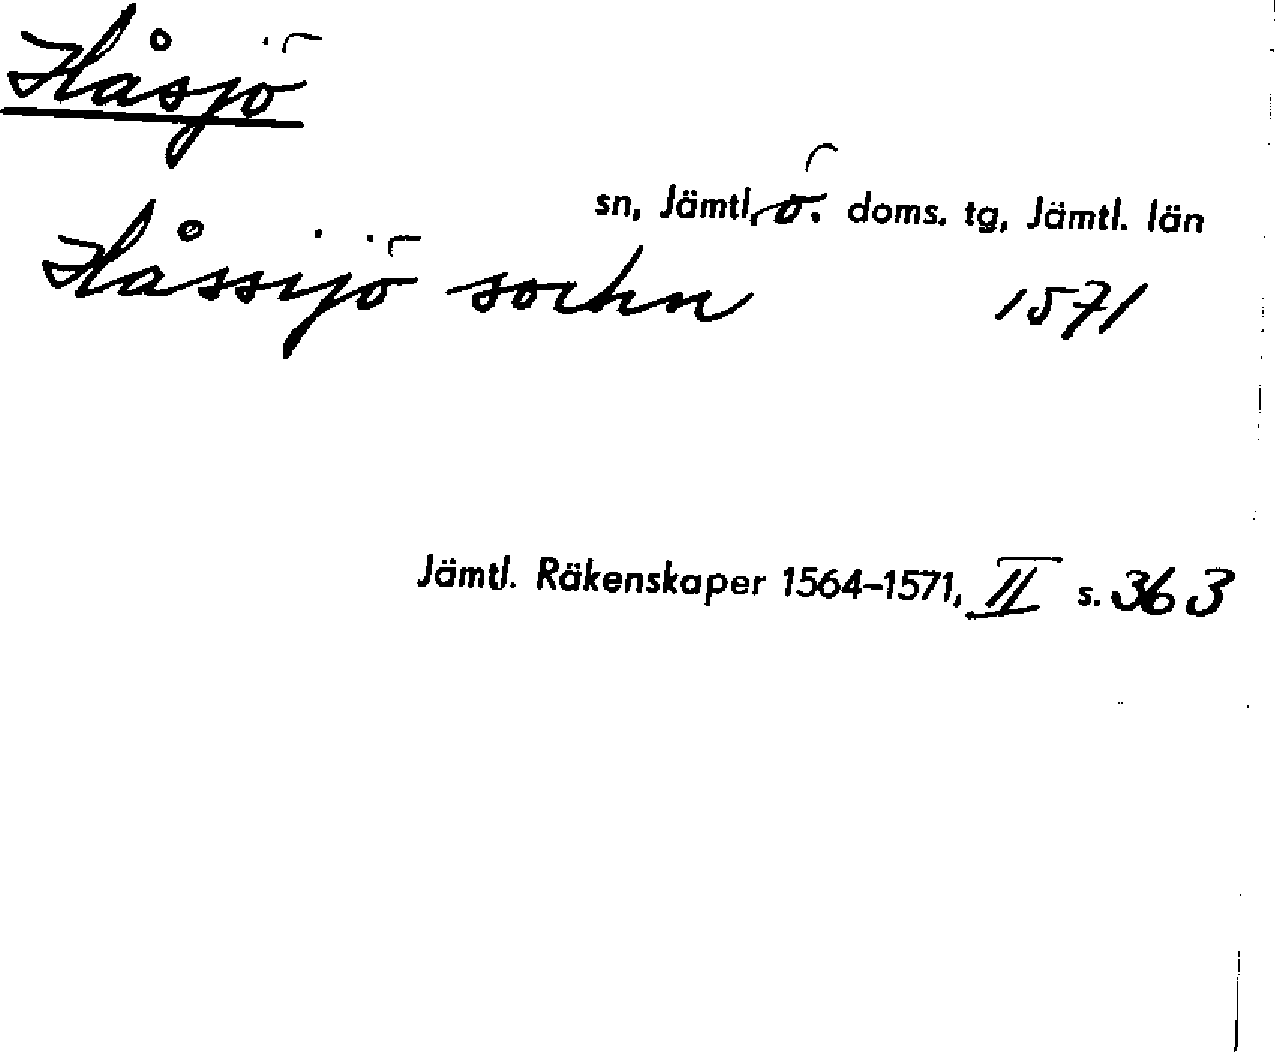 Håsjö
sn, Jämtl, ö. doms. tg, Jämtl. län
Håssijö sochn 1571
Jämtl. Räkenskaper 1564-1571, II s. 363